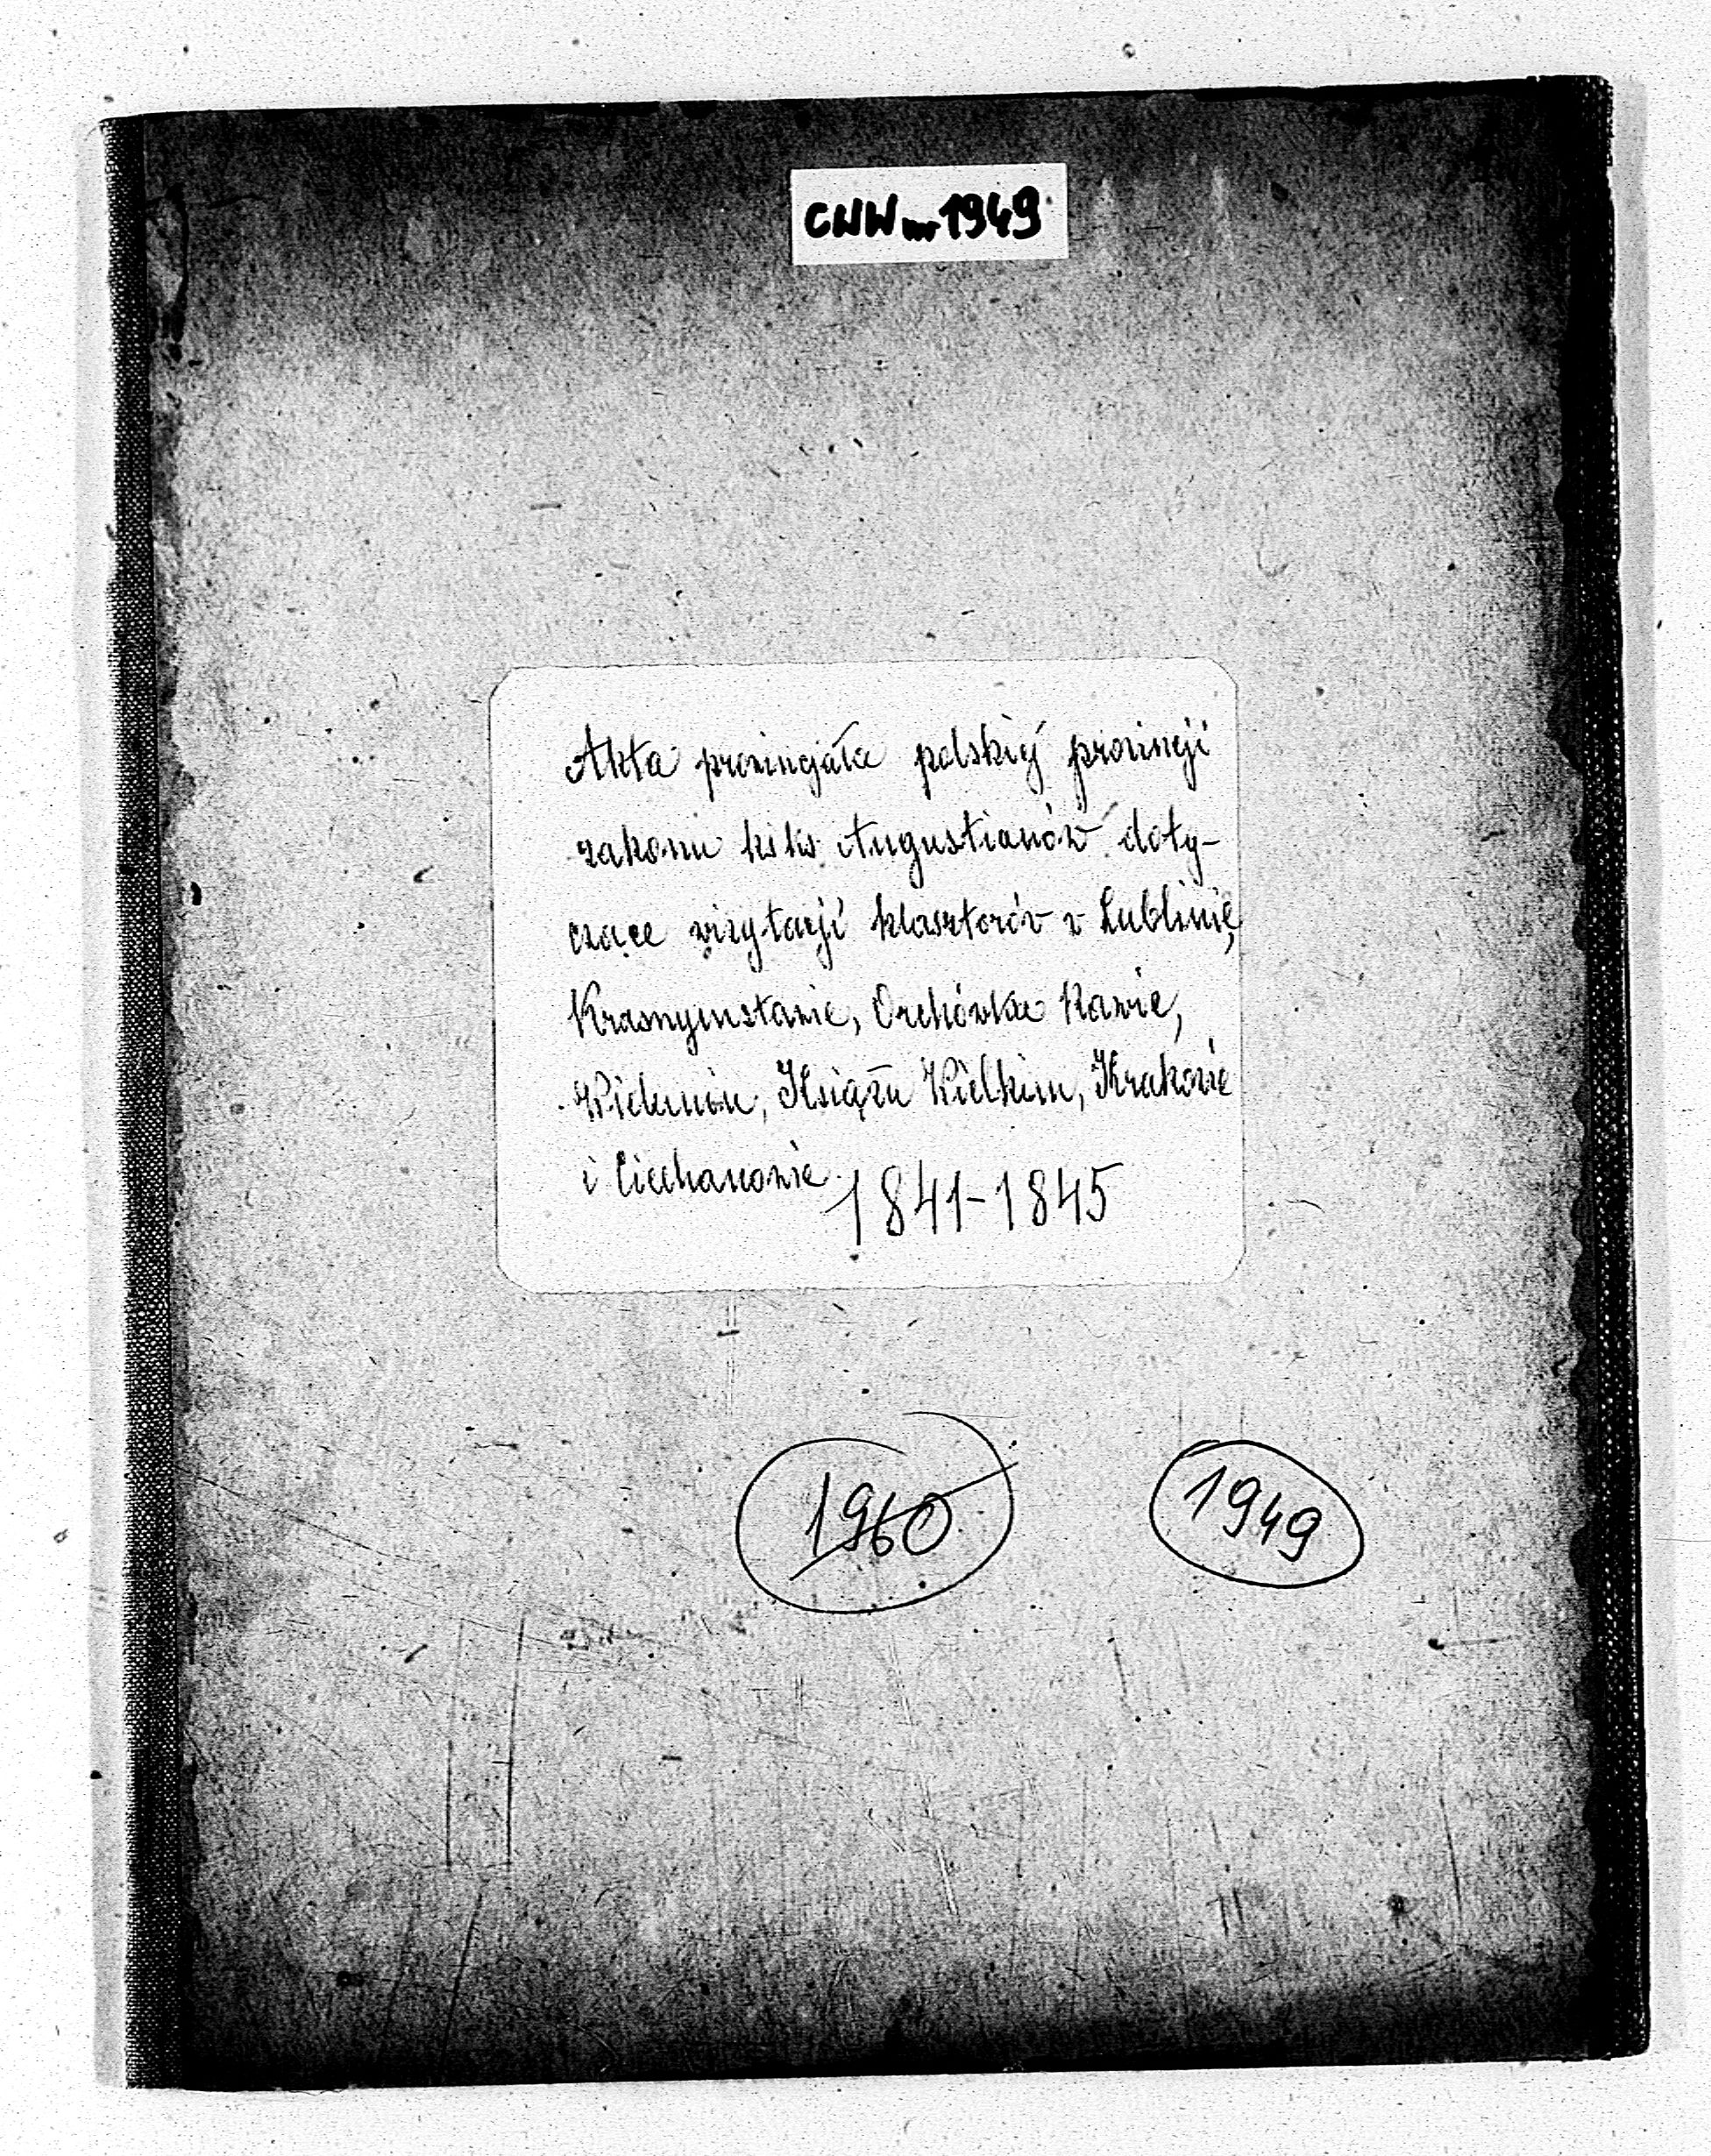 CWW nr 1949
Akta prowincjała polskiej prowincji
zakonu ks.ks. Augustianów doty-
czące wizytacji klasztorów w Lublinie,
Krasnymstawie, Orchówku Rawie,
Wieluniu, Książu Wielkim, Krakowie
i Ciechanowie 1841-1845
1960
1949